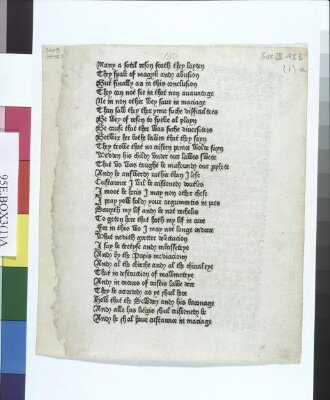 Many a sotil reson forth they leyden
They speak of magyk and abusion
But finally as in this conclusion
They can not see in that non auauntage
Ne in non other wey saue in mariage
Than saw they ther yn suche difficultees
Be wey of reson to speke al playn
Be cause that ther was suche diuersitees
Bitwixt her bothe lawes that they sayn
They trowe that no cristen prince wolde fayn
Wedden his childe vnder our lawes swete
That vs was taught be mahound our prophete
And he answerd rather than I lese
Custaunce I wil be cristened doutles
I moot be heris I may non other chese
I pray yow hold your argumentis in pees
Saueth my lif and be not recheles
To geten her that hath my lif in cure
For in this wo I may not longe endure
What nedith gretter dilatacion
I say be tretyse and embassetrye
And by the Popis mediacion
And al the chirche and al the chiualrye
That in destruccion of mawmetrye
And in encres of cristis lawe dere
They be acorded as ye shal here
How that the Soldan and his baronage
And alle his liegis shul cristened be
And he shal haue custaunce in mariage
Sel III 95E
(1) a